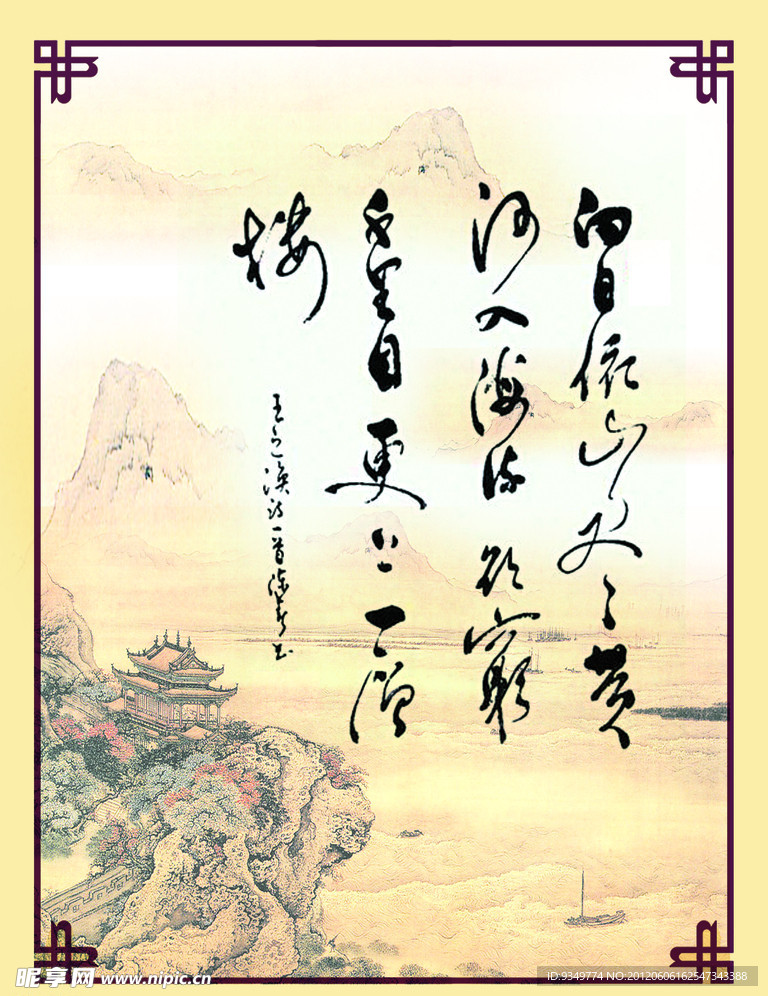 白日依山尽黄
河入海流欲窮
千里目更上一層
樓
王之涣诗一首
昵享网 www.nipic.cn
ID:9349774 NO.20120606162547343388